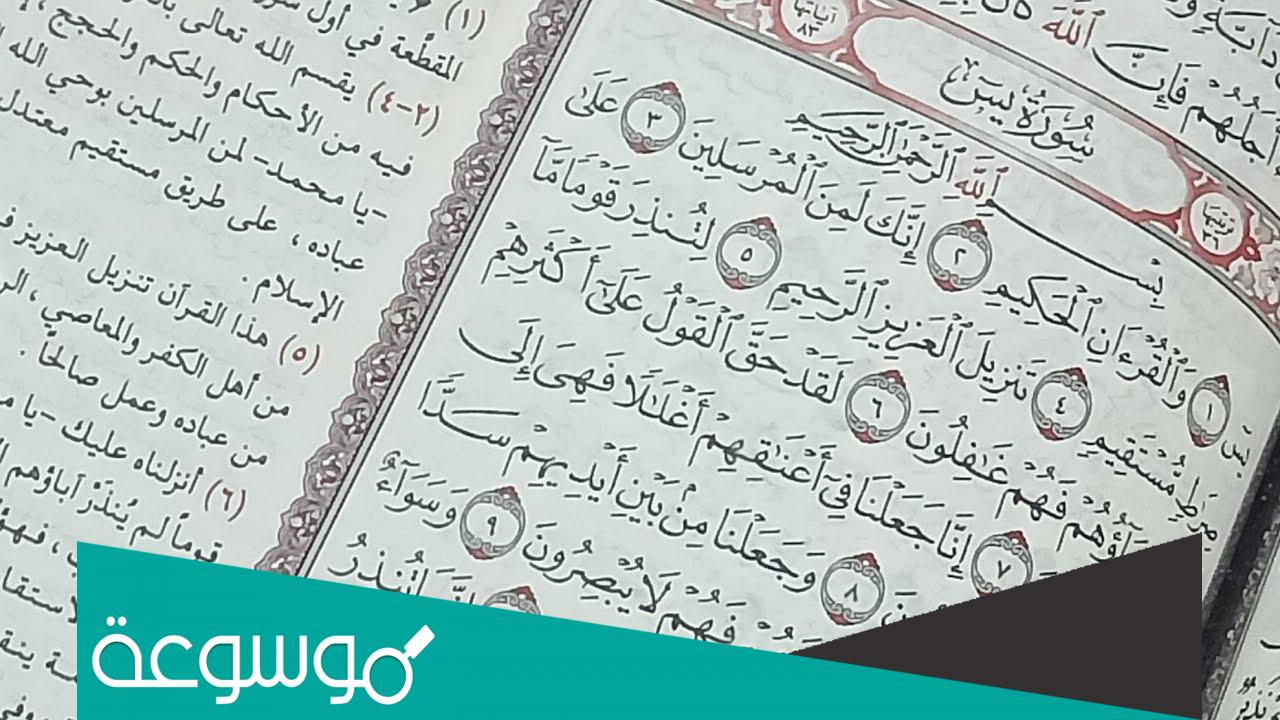 دَآبَّةٍ
ٱللَّهَ
أَجَلُهُمْ فَإِنَّ
آيَاتُهَا
٨٣
سُورَةُ يسٓ
تَرْتِيبُهَا
٣٦
بِسْمِ ٱللَّهِ ٱلرَّحْمَٰنِ ٱلرَّحِيمِ
يسٓ ١ وَٱلْقُرْءَانِ ٱلْحَكِيمِ ٢ إِنَّكَ لَمِنَ ٱلْمُرْسَلِينَ ٣ عَلَىٰ
صِرَٰطٍ مُّسْتَقِيمٍ ٤ تَنزِيلَ ٱلْعَزِيزِ ٱلرَّحِيمِ ٥ لِتُنذِرَ قَوْمًا مَّآ
فَهُمْ غَٰفِلُونَ ٦ لَقَدْ حَقَّ ٱلْقَوْلُ عَلَىٰٓ أَكْثَرِهِمْ
٧ إِنَّا جَعَلْنَا فِىٓ أَعْنَٰقِهِمْ أَغْلَٰلًا فَهِىَ إِلَى
٨ وَجَعَلْنَا مِنۢ بَيْنِ أَيْدِيهِمْ سَدًّا
فَهُمْ لَا يُبْصِرُونَ ٩ وَسَوَآءٌ
إِنَّمَا تُنذِرُ
(١)
المقطَّعة في أول
(٢-٤) يقسم الله تعالى
فيه من الأحكام والحكم والحجج
-يا محمد- لمن المرسلين بوحي الله
عباده، على طريق مستقيم معتدل
الإسلام.
(٥) هذا القرآن تنزيل العزيز
من أهل الكفر والمعاصي، الر
من عباده وعمل صالحًا.
(٦) أنزلناه عليك -يا
قوماً لم يُنذَرْ آباؤهم
موسوعة